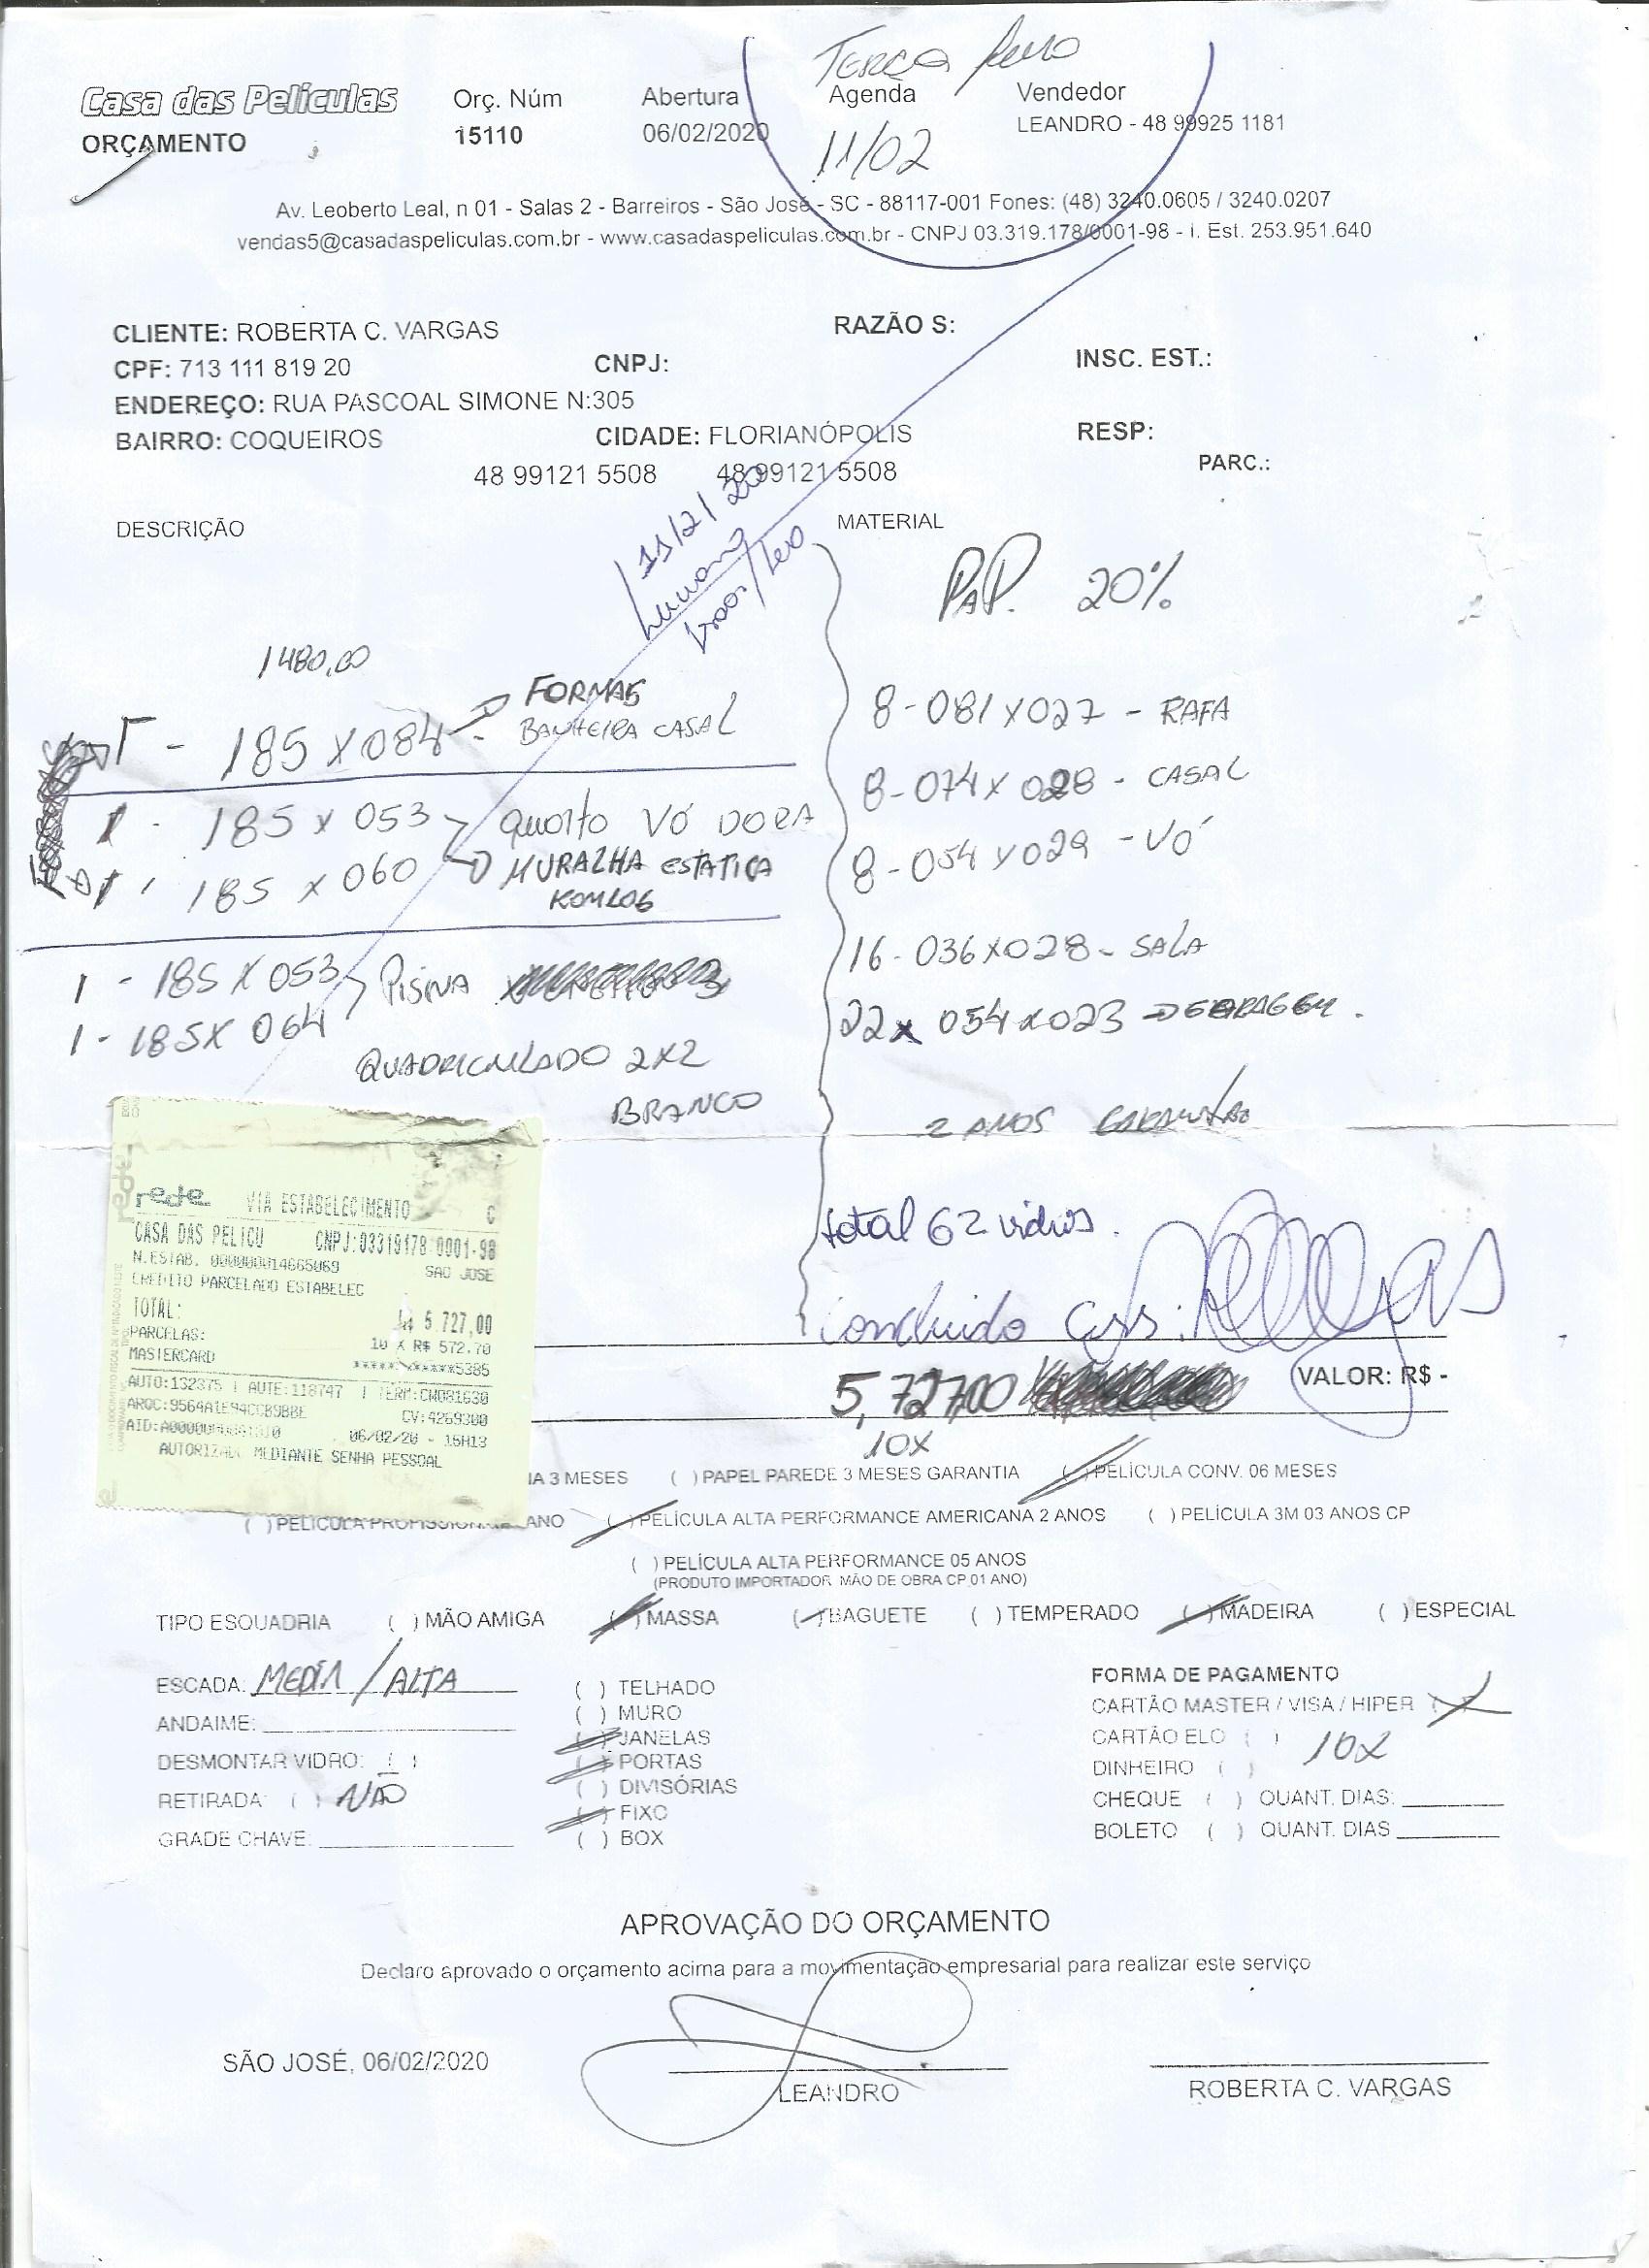 TERÇA
Casa das Películas
ORÇAMENTO
Orç. Núm
15110
Abertura
06/02/2020
Agenda
11/02
Vendedor
LEANDRO - 48 99925 1181
Av. Leoberto Leal, n 01 - Salas 2 - Barreiros - São José - SC - 88117-001 Fones: (48) 3240.0605 / 3240.0207
vendas5@casadaspeliculas.com.br - www.casadaspeliculas.com.br - CNPJ 03.319.178/0001-98 - i. Est. 253.951.640
CLIENTE: ROBERTA C. VARGAS
RAZÃO S:
CPF: 713 111 819 20
CNPJ:
INSC. EST.:
ENDEREÇO: RUA PASCOAL SIMONE N:305
BAIRRO: COQUEIROS
CIDADE: FLORIANÓPOLIS
RESP:
48 99121 5508 48 99121 5508
PARC.:
DESCRIÇÃO
MATERIAL
11/2/20
PAP. 20%
1480,00
FORMAS
185 X 084 - BANHEIRA CASAL
1 - 185 x 053 quarto VÓ DORA
185 x 060 MURALHA ESTATICA
1 - 185 X 053 PISINA
1 - 185 X 064
QUADRICULADO 2X2
BRANCO
8-081 X 027 - RAFA
8-074 x 028 - CASAL
8-054 x 029 - VÓ
16-036 X 028 - SALA
22 x 054 x 023
2 ANOS
total 62 vidros.
Concluido ass:
rede VIA ESTABELECIMENTO C
CASA DAS PELICU CNPJ:03319178 0001-98
N.ESTAB. 000000014665069 SAO JOSE
CREDITO PARCELADO ESTABELEC
TOTAL: 5.727,00
PARCELAS: 10 X R$ 572.70
MASTERCARD 5385
AUTO:132375 | AUTE:118747 | TERM:CW081630
ARQC:9564A1E94CCB9BBE CV:4269300
06/02/20 - 15H13
AUTORIZADA MEDIANTE SENHA PESSOAL
5,727,00
VALOR: R$ -
10X
IA 3 MESES ( ) PAPEL PAREDE 3 MESES GARANTIA ( ) PELÍCULA CONV. 06 MESES
( ) PELÍCULA PROFISSIONAL ANO ( ) PELÍCULA ALTA PERFORMANCE AMERICANA 2 ANOS ( ) PELÍCULA 3M 03 ANOS CP
( ) PELÍCULA ALTA PERFORMANCE 05 ANOS
(PRODUTO IMPORTADOR MÃO DE OBRA CP 01 ANO)
TIPO ESQUADRIA ( ) MÃO AMIGA ( ) MASSA ( ) BAGUETE ( ) TEMPERADO ( ) MADEIRA ( ) ESPECIAL
ESCADA: MEDIA / ALTA
ANDAIME:
DESMONTAR VIDRO: ( )
RETIRADA: ( ) NÃO
GRADE CHAVE:
( ) TELHADO
( ) MURO
( ) JANELAS
( ) PORTAS
( ) DIVISÓRIAS
( ) FIXO
( ) BOX
FORMA DE PAGAMENTO
CARTÃO MASTER / VISA / HIPER (X)
CARTÃO ELO ( ) 10X
DINHEIRO ( )
CHEQUE ( ) QUANT. DIAS:
BOLETO ( ) QUANT. DIAS
APROVAÇÃO DO ORÇAMENTO
Declaro aprovado o orçamento acima para a movimentação empresarial para realizar este serviço
SÃO JOSÉ, 06/02/2020
LEANDRO
ROBERTA C. VARGAS